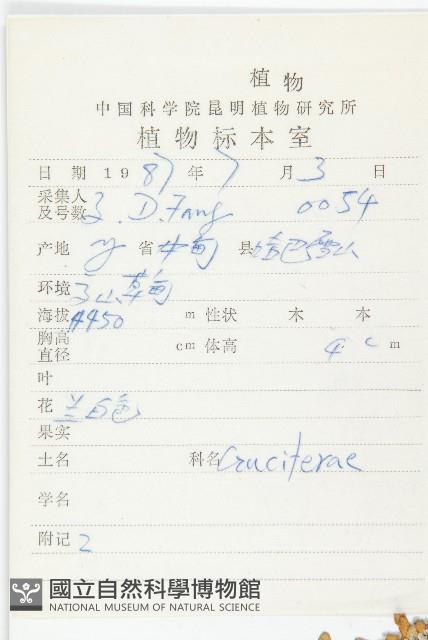 植物
中国科学院昆明植物研究所
植物标本室
日期 1987年 7月 3日
采集人 Z. D. Fang 0054
及号数
产地 省 中甸 县 哈巴雪山
环境 高山草甸
海拔 4450 m 性状 木 本
胸高 cm 体高 4 cm
直径
叶
花 兰白色
果实
土名 科名 Cruciferae
学名
附记 2
國立自然科學博物館
NATIONAL MUSEUM OF NATURAL SCIENCE